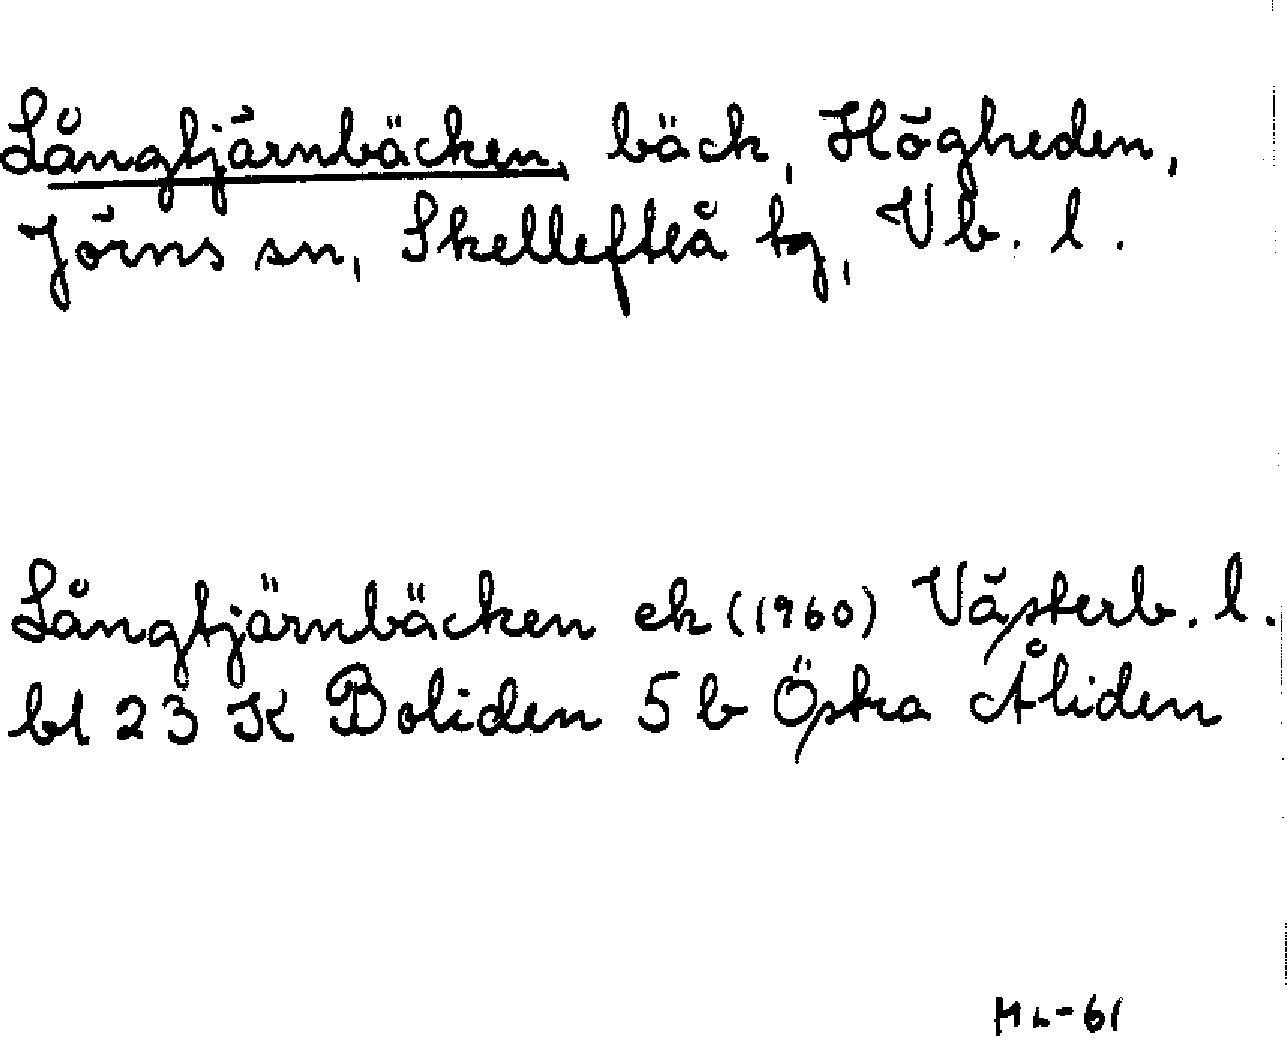 Långtjärnbäcken, bäck, Högheden,
Jörns sn, Skellefteå tg, Vb. l.
Långtjärnbäcken ek (1960) Västerb. l.
bl 23 K Boliden 5 b Östra Åliden